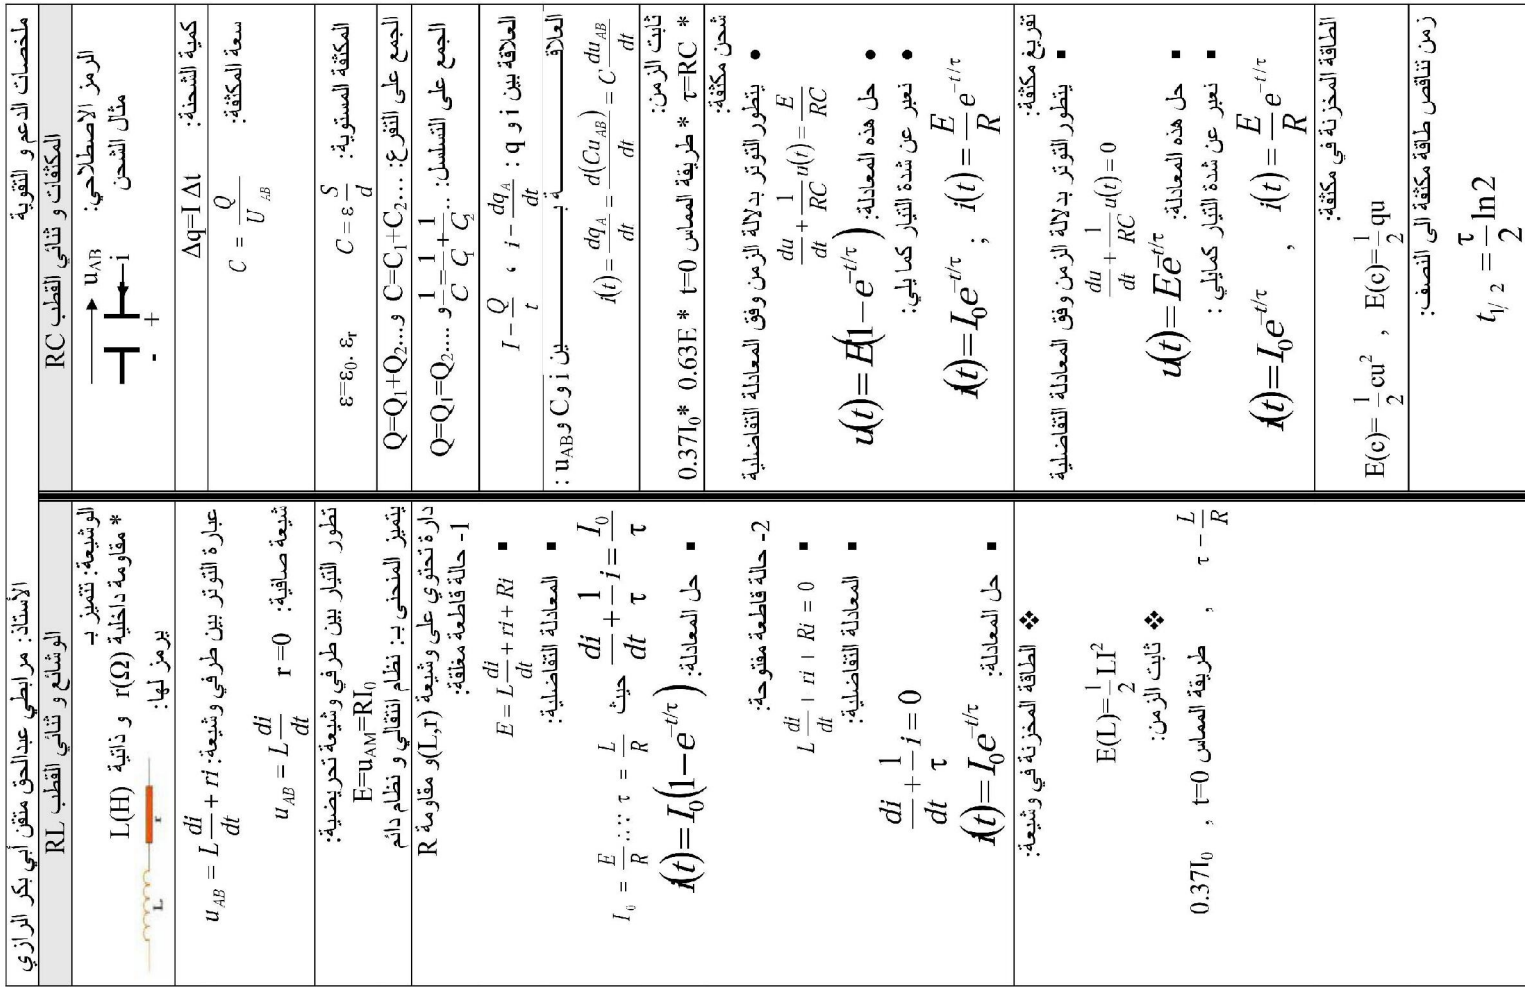 ملخصات الدعم و التقوية
الأستاذ: مرابطي عبدالحق متقن أبي بكر الرازي
المكثفات و ثنائي القطب RC
الرمز الاصطلاحي:
مثال الشحن
u_AB
i
- +
كمية الشحنة: Δq=I Δt
سعة المكثفة:
C = Q / U_AB
المكثفة المستوية: C = ε S/d
ε=ε₀. εᵣ
الجمع على التفرع: C=C₁+C₂... و Q=Q₁+Q₂...
الجمع على التسلسل: 1/C = 1/C₁ + 1/C₂ ... و Q=Q₁=Q₂....
العلاقة بين i و q : i - dq_A/dt ، I - Q/t
العلاقـــــــــــــــة بـــــــــــــــين i و C و u_AB :
i(t) = dq_A/dt = d(Cu_AB)/dt = C du_AB/dt
ثابت الزمن:
* τ=RC * طريقة المماس t=0 * 0.63E *0.37I₀
شحن مكثفة:
• يتطور التوتر بدلالة الزمن وفق المعادلة التفاضلية
du/dt + 1/RC u(t) = E/RC
• حل هذه المعادلة: u(t) = E(1 − e^(−t/τ))
• نعبر عن شدة التيار كمايلي:
i(t) = I₀e^(−t/τ) ; i(t) = E/R e^(−t/τ)
تفريغ مكثفة:
▪ يتطور التوتر بدلالة الزمن وفق المعادلة التفاضلية
du/dt + 1/RC u(t) = 0
▪ حل هذه المعادلة: u(t) = Ee^(−t/τ)
▪ نعبر عن شدة التيار كمايلي:
i(t) = I₀e^(−t/τ) , i(t) = E/R e^(−t/τ)
الطاقة المخزنة في مكثفة:
E(c)= 1/2 cu² , E(c)= 1/2 qu
زمن تناقص طاقة مكثفة الى النصف:
t_1/2 = τ/2 ln2
الوشائع و ثنائي القطب RL
الوشيعة: تتميز بـ
* مقاومة داخلية r(Ω) و ذاتية L(H)
يرمز لها:
L r
عبارة التوتر بين طرفي وشيعة: u_AB = L di/dt + ri
شيعة صافية: r =0 u_AB = L di/dt
تطور التيار بين طرفي وشيعة تحريضية:
E=u_AM=RI₀
يتميز المنحنى بـ: نظام انتقالي و نظام دائم
دارة تحتوي على وشيعة (L,r)و مقاومة R
1- حالة قاطعة مغلقة:
▪ E = L di/dt + ri + Ri
▪ المعادلة التفاضلية:
di/dt + 1/τ i = I₀/τ حيث τ = L/R ..... I₀ = E/R
▪ حل المعادلة: i(t) = I₀(1 − e^(−t/τ))
2- حالة قاطعة مفتوحة:
▪ L di/dt + ri + Ri = 0
▪ المعادلة التفاضلية:
di/dt + 1/τ i = 0
▪ حل المعادلة: i(t) = I₀e^(−t/τ)
❖ الطاقة المخزنة في وشيعة:
E(L)= 1/2 LI²
❖ ثابت الزمن:
τ - L/R , طريقة المماس t=0 , 0.37I₀